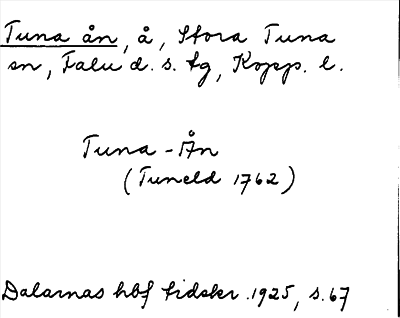 Tuna ån, å, Stora Tuna
sn, Falu d. s. tg, Kopp. l.
Tuna-Ån
(Tuneld 1762)
Dalarnas hbf tidskr. 1925, s. 67